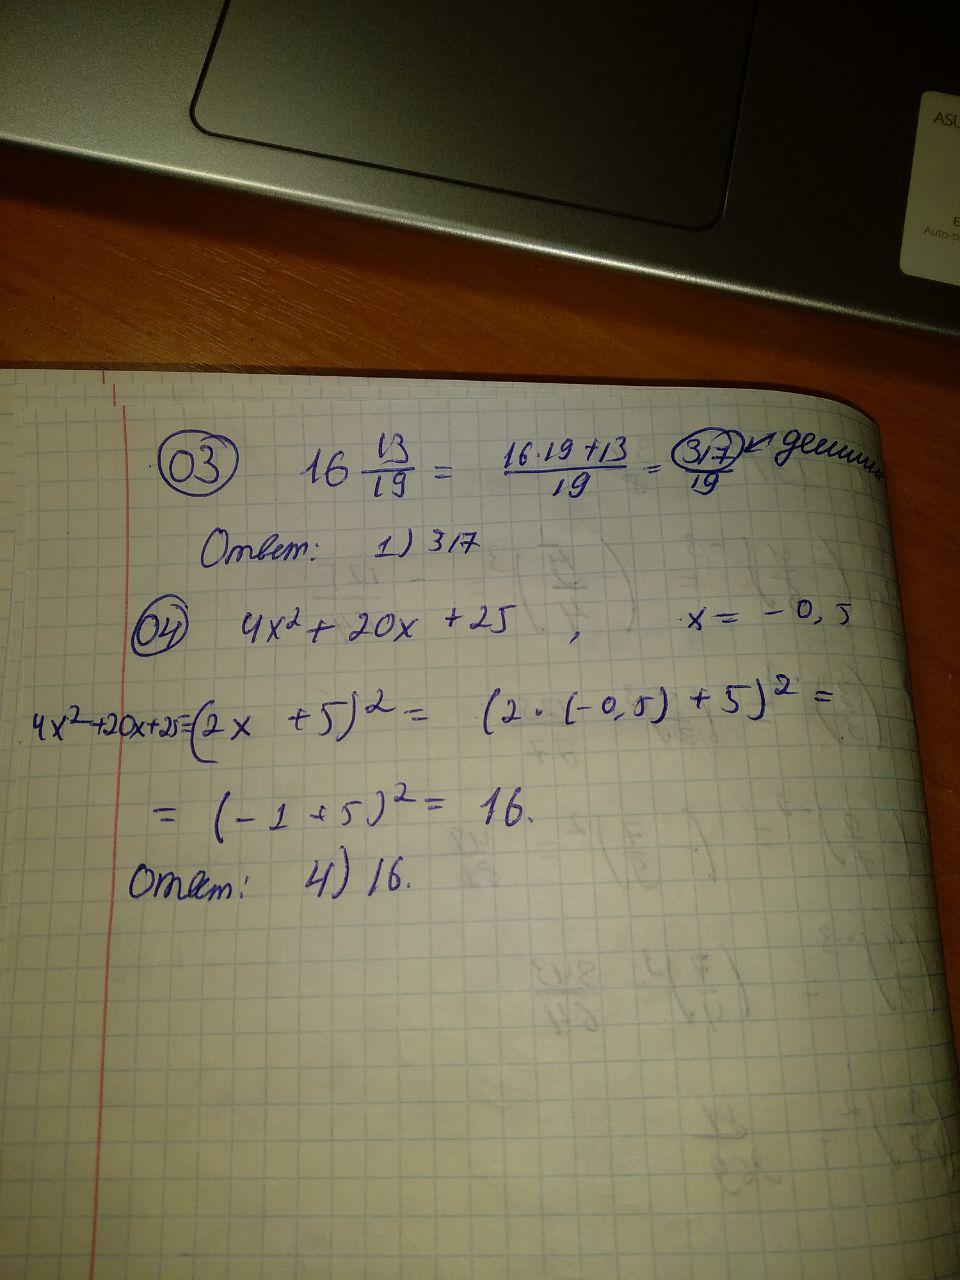 ASU
E
Auto-ti
03 16 13/19 = (16·19+13)/19 = 317/19
Ответ: 1) 317
04 4x²+20x+25, x=-0,5
4x²+20x+25=(2x+5)²=(2·(-0,5)+5)²=
=(-1+5)²=16.
Ответ: 4) 16.